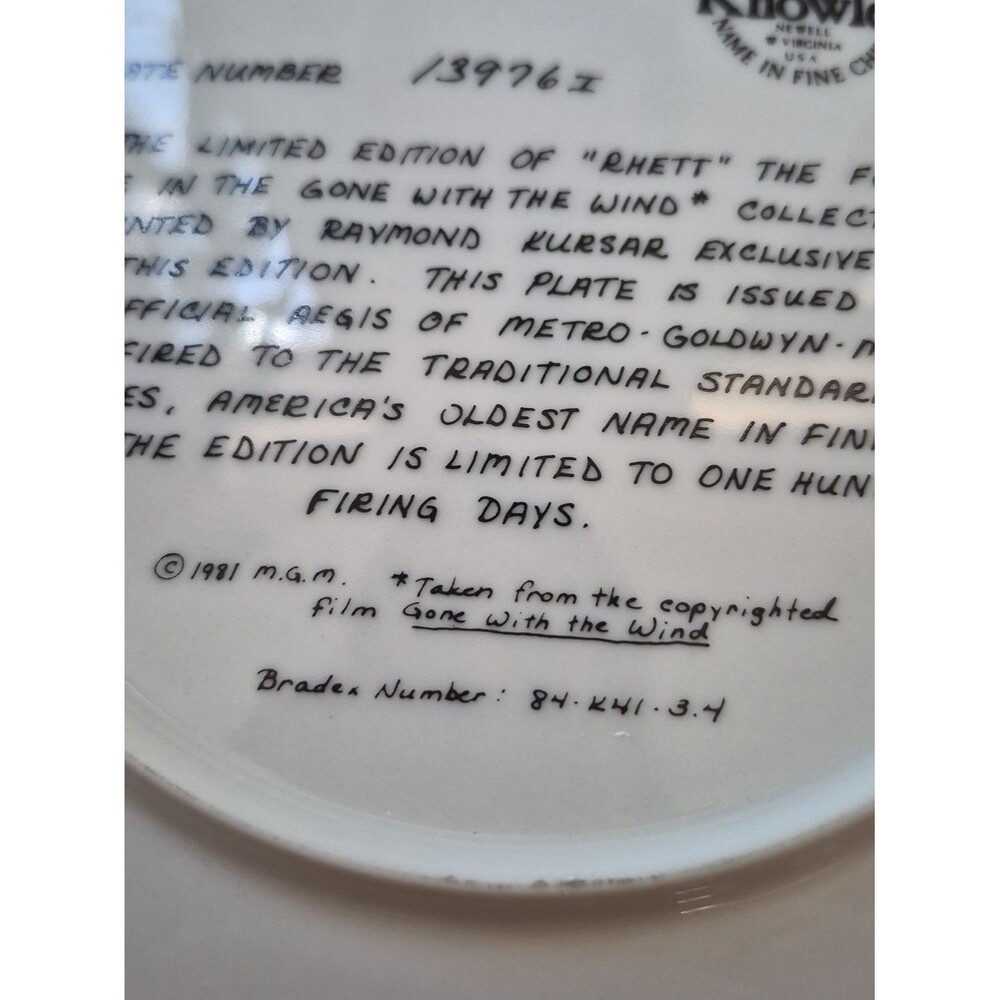 Knowl
NEWELL
VIRGINIA
USA
NAME IN FINE CH
ATE NUMBER 13976 I
THE LIMITED EDITION OF "RHETT" THE F
E IN THE GONE WITH THE WIND* COLLECT
NTED BY RAYMOND KURSAR EXCLUSIVE
THIS EDITION. THIS PLATE IS ISSUED
FFICIAL AEGIS OF METRO-GOLDWYN-M
FIRED TO THE TRADITIONAL STANDAR
ES, AMERICA'S OLDEST NAME IN FIN
THE EDITION IS LIMITED TO ONE HUN
FIRING DAYS.
© 1981 M.G.M. *Taken from the copyrighted
film Gone With the Wind
Bradex Number: 84-K41-3.4